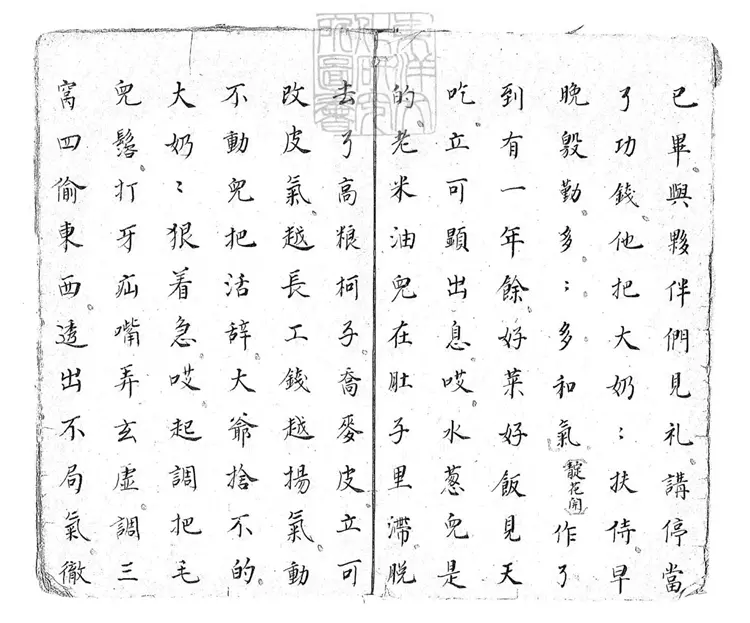 已畢與夥伴們見礼講停當
了功錢他把大奶〻扶侍早
晚殷勤多〻多和氣靛花開作了
到有一年餘好菜好飯見天
吃立可顯出息哎水葱兒是
的老米油兒在肚子里滯脫
去了高粮柯子喬麥皮立可
改皮氣越長工錢越揚氣動
不動兒把活辞大爺捨不的
大奶〻狠着急哎起調把毛
兒鬆打牙疝嘴弄玄虛調三
窩四偷東西透出不局氣徹